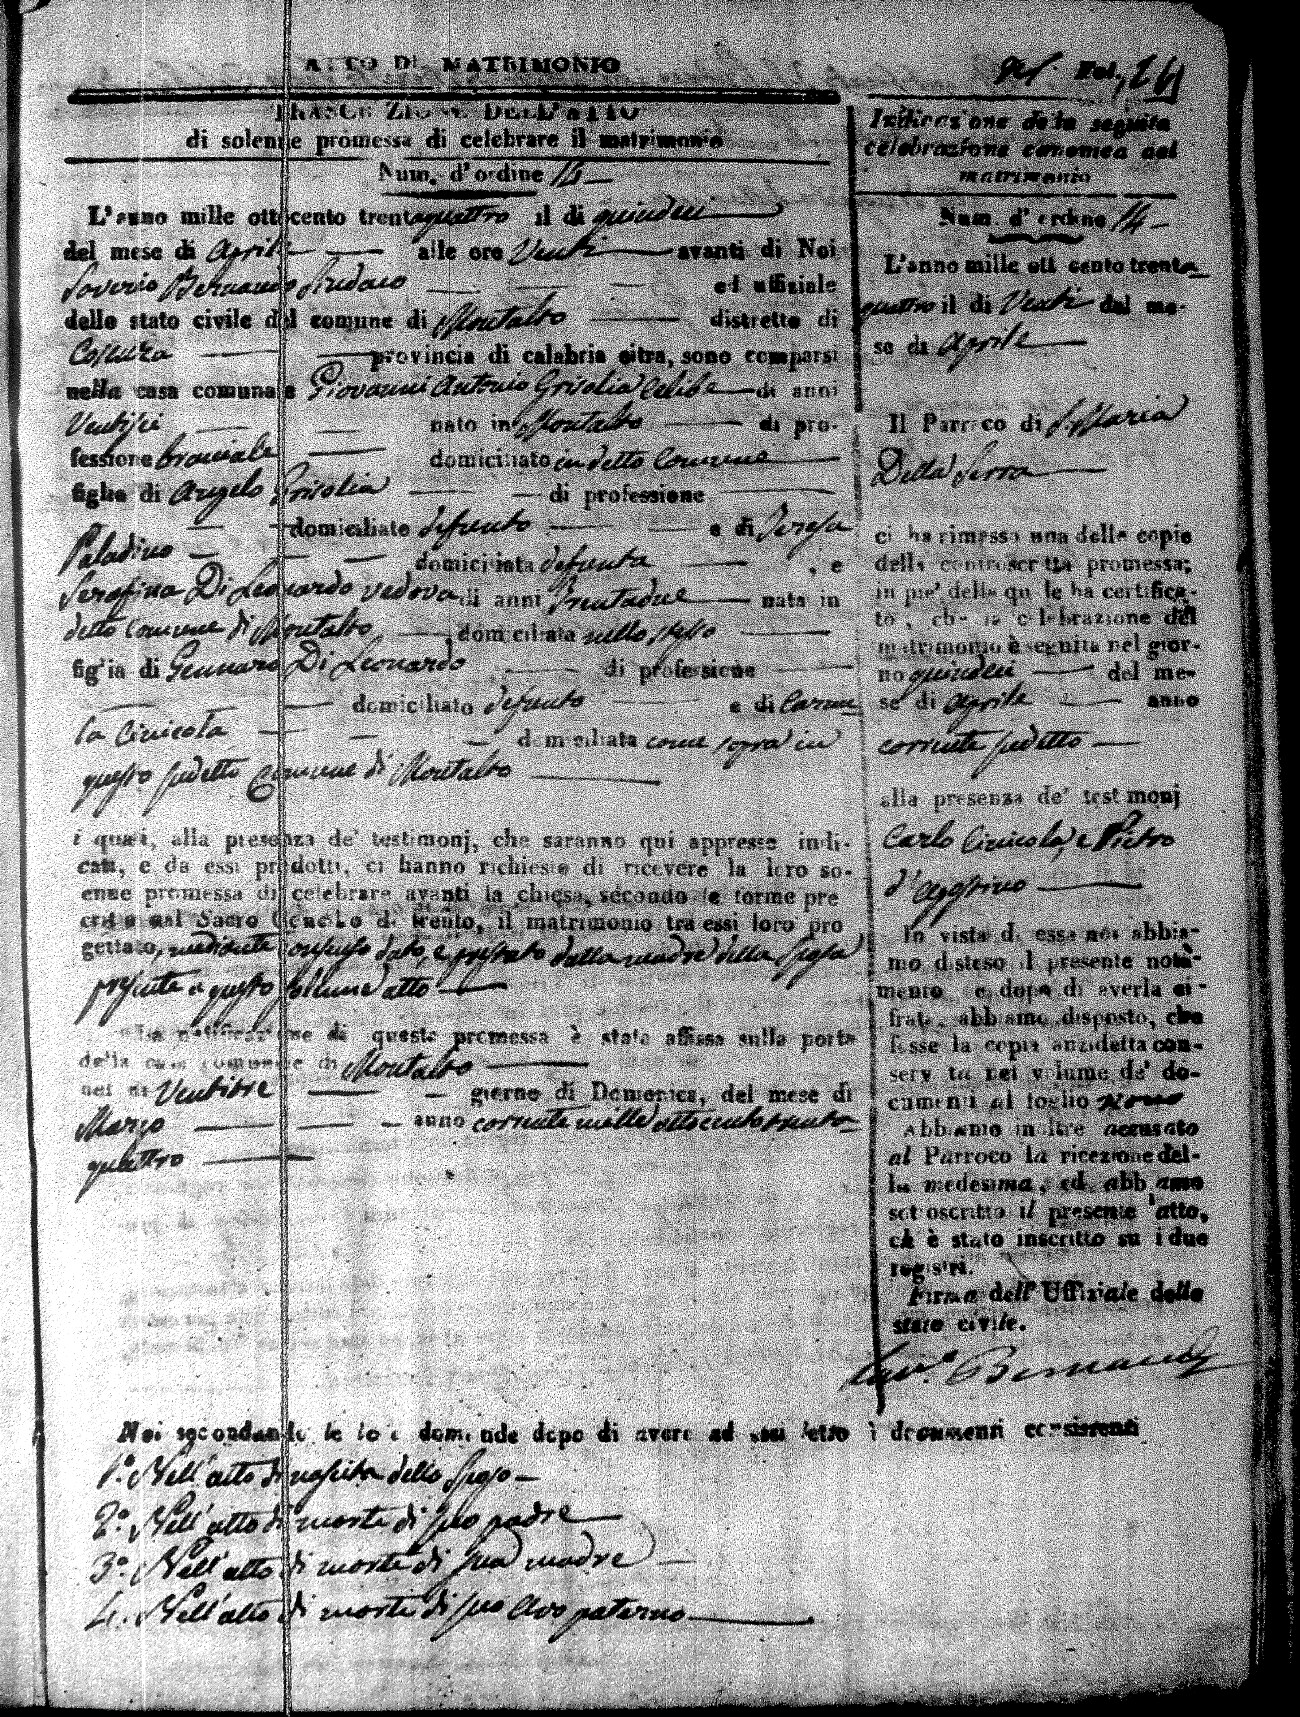 ATTO DI MATRIMONIO
Fol. 26
TRASCRIZIONE DELL'ATTO
di solenne promessa di celebrare il matrimonio
Num. d'ordine
L'anno mille ottocento trentaquattro il di quindeci
del mese di Aprile alle ore Venti avanti di Noi
Saverio Bernardo Sindaco ed uffiziale
dello stato civile del comune di Montalto distretto di
Cosenza provincia di calabria citra, sono comparsi
nella casa comunale Giovanni Antonio Grisolia Celibe di anni
Ventisei nato in Montalto di pro-
fessione bracciale domiciliato in detto Comune
figlio di Angelo Grisolia di professione
domiciliato defunto e di Teresa
Paladino domiciliata defunta , e
Serafina Di Leonardo vedova di anni Trentadue nata in
detto Comune di Montalto domiciliata nello stesso
figlia di Gennaro Di Leonardo di professione
domiciliato defunto e di Carme
la Civicola domiciliata come sopra in
questo sudetto Comune di Montalto
i quali, alla presenza de' testimonj, che saranno qui appresso indi-
cati, e da essi prodotti, ci hanno richiesto di ricevere la loro so-
enne promessa di celebrare avanti la chiesa, secondo le forme pre
critte dal Sacro Concilio di Trento, il matrimonio tra essi loro pro
gettato, mediante consenso dato, e prestato dalla madre della Sposa
presente a questo solenne atto
La notificazione di questa promessa è stata affissa sulla porta
della casa comunale di Montalto
nel di Ventitre giorno di Domenica, del mese di
Marzo anno corrente mille ottocento trenta-
quattro
Indicazione della seguita
celebrazione canonica del
matrimonio
Num. d'ordine 14
L'anno mille ottocento trenta-
quattro il di Venti del me-
se di Aprile
Il Parroco di S. Maria
Della Serra
ci ha rimessa una delle copie
della controscritta promessa;
in pie' della quale ha certifica-
to, che la celebrazione del
matrimonio è seguita nel gior-
no quindeci del me-
se di Aprile anno
corrente sudetto
alla presenza de' testimonj
Carlo Civicola, e Pietro
d'Agostino
In vista di essa noi abbia-
mo disteso il presente notà-
mento e dopo di averla ci-
frata, abbiamo disposto, che
fosse la copia anzidetta con-
servata nel volume de' do-
cumenti al foglio nono
Abbiamo inoltre accusato
al Parroco la ricezione del-
la medesima, ed abbiamo
sottoscritto il presente atto,
ch è stato inscritto su i due
registri.
Firma dell' Uffiziale dello
stato civile.
Sav.o Bernardo
Noi secondando le loro domande dopo di avere ad essi letto i documenti consistenti
1.o Nell'atto di nascita dello Sposo
2.o Nell'atto di morte di suo padre
3.o Nell'atto di morte di sua madre
4. Nell'atto di morte di suo Avo paterno